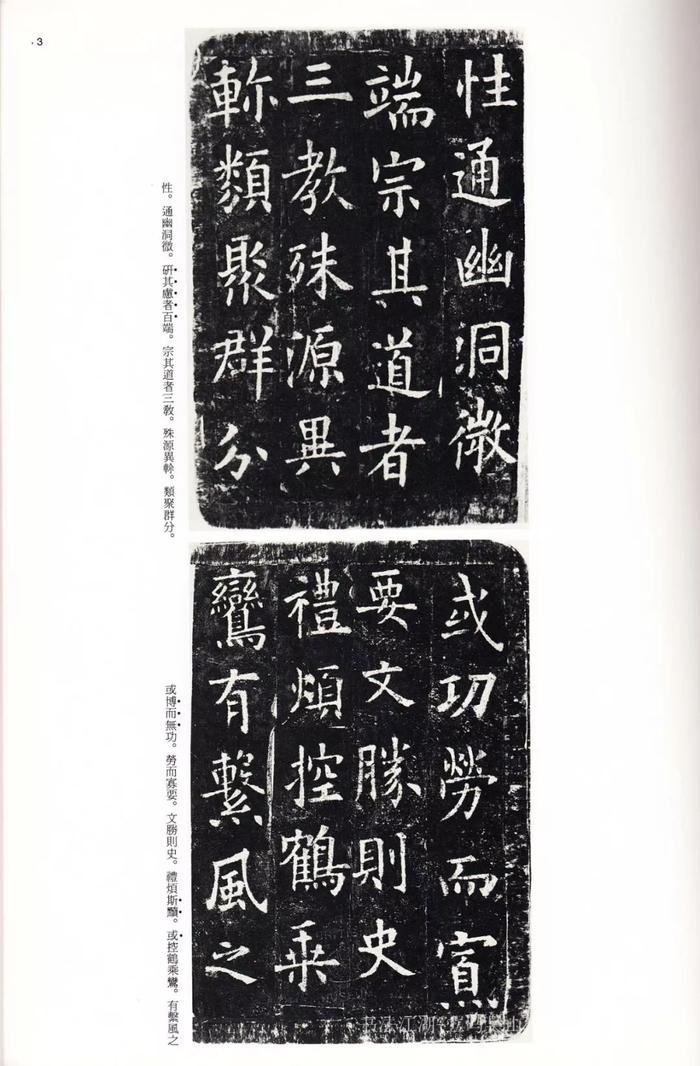 3
性通幽洞微
端宗其道者
三教殊源異
𠦝類聚群分
性。通幽洞微。研其慮者百端。宗其道者三教。殊源異幹。類聚群分。
或功勞而寡
要文勝則史
禮煩控鶴乘
鸞有繫風之
或博而無功。勞而寡要。文勝則史。禮煩斯黷。或控鶴乘鸞。有繫風之